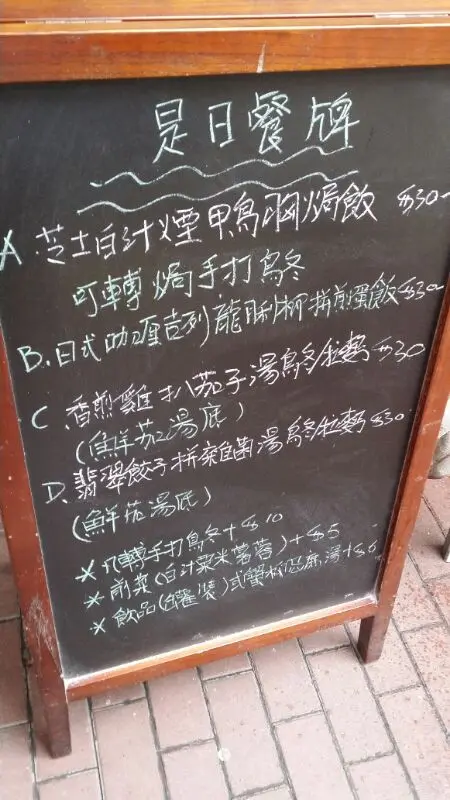 是日餐牌
A 芝士白汁煙鴨胸焗飯 $30
可轉焗手打烏冬
B. 日式咖喱吉列龍脷柳拼煎蛋飯 $30
C 香煎雞扒茄子湯烏冬/拉麵 $30
(鮮茄湯底)
D. 翡翠餃子拼雜菌湯烏冬/拉麵 $30
(鮮茄湯底)
* 凡轉手打烏冬 + $10
* 前菜(白汁粟米薯蓉) + $5
* 飲品(罐裝)或 湯 + $6